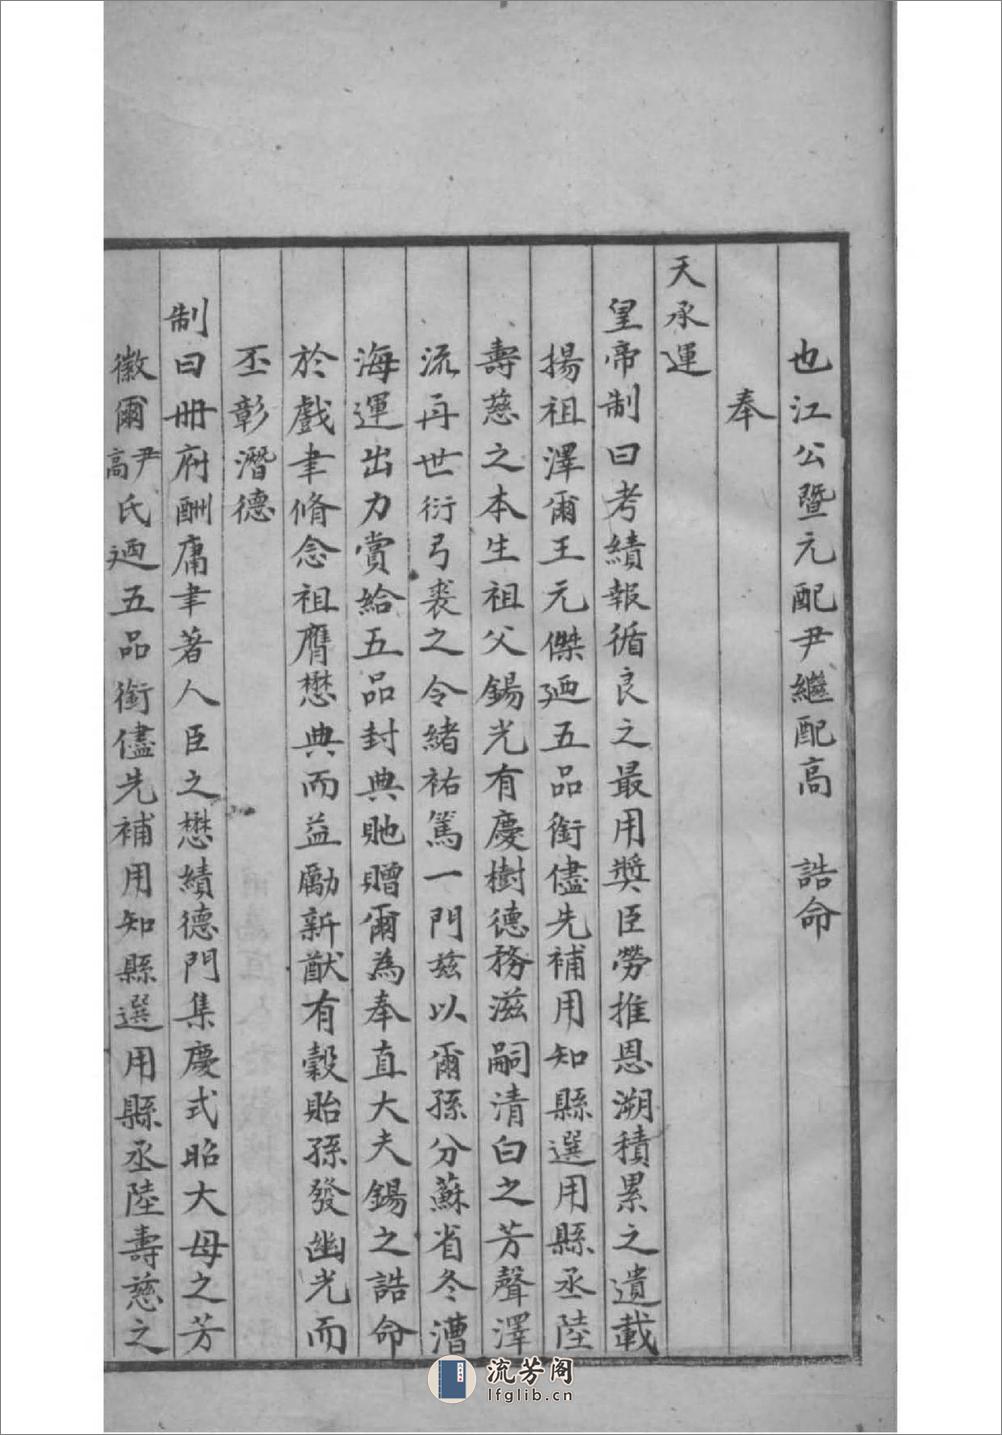 也江公暨元配尹繼配高　誥命
奉
天承運
皇帝制曰考績報循良之最用獎臣勞推恩溯積累之遺載
揚祖澤爾王元傑廼五品銜儘先補用知縣選用縣丞陸
壽慈之本生祖父錫光有慶樹德務滋嗣清白之芳聲澤
流再世衍弓裘之令緒祐篤一門玆以爾孫分蘇省冬漕
海運出力賞給五品封典貤贈爾為奉直大夫錫之誥命
於戲聿脩念祖膺懋典而益勵新猷有穀貽孫發幽光而
丕彰潛德
制曰冊府酬庸聿著人臣之懋績德門集慶式昭大母之芳
徽爾尹高氏廼五品銜儘先補用知縣選用縣丞陸壽慈之
流芳阁
lfglib.cn